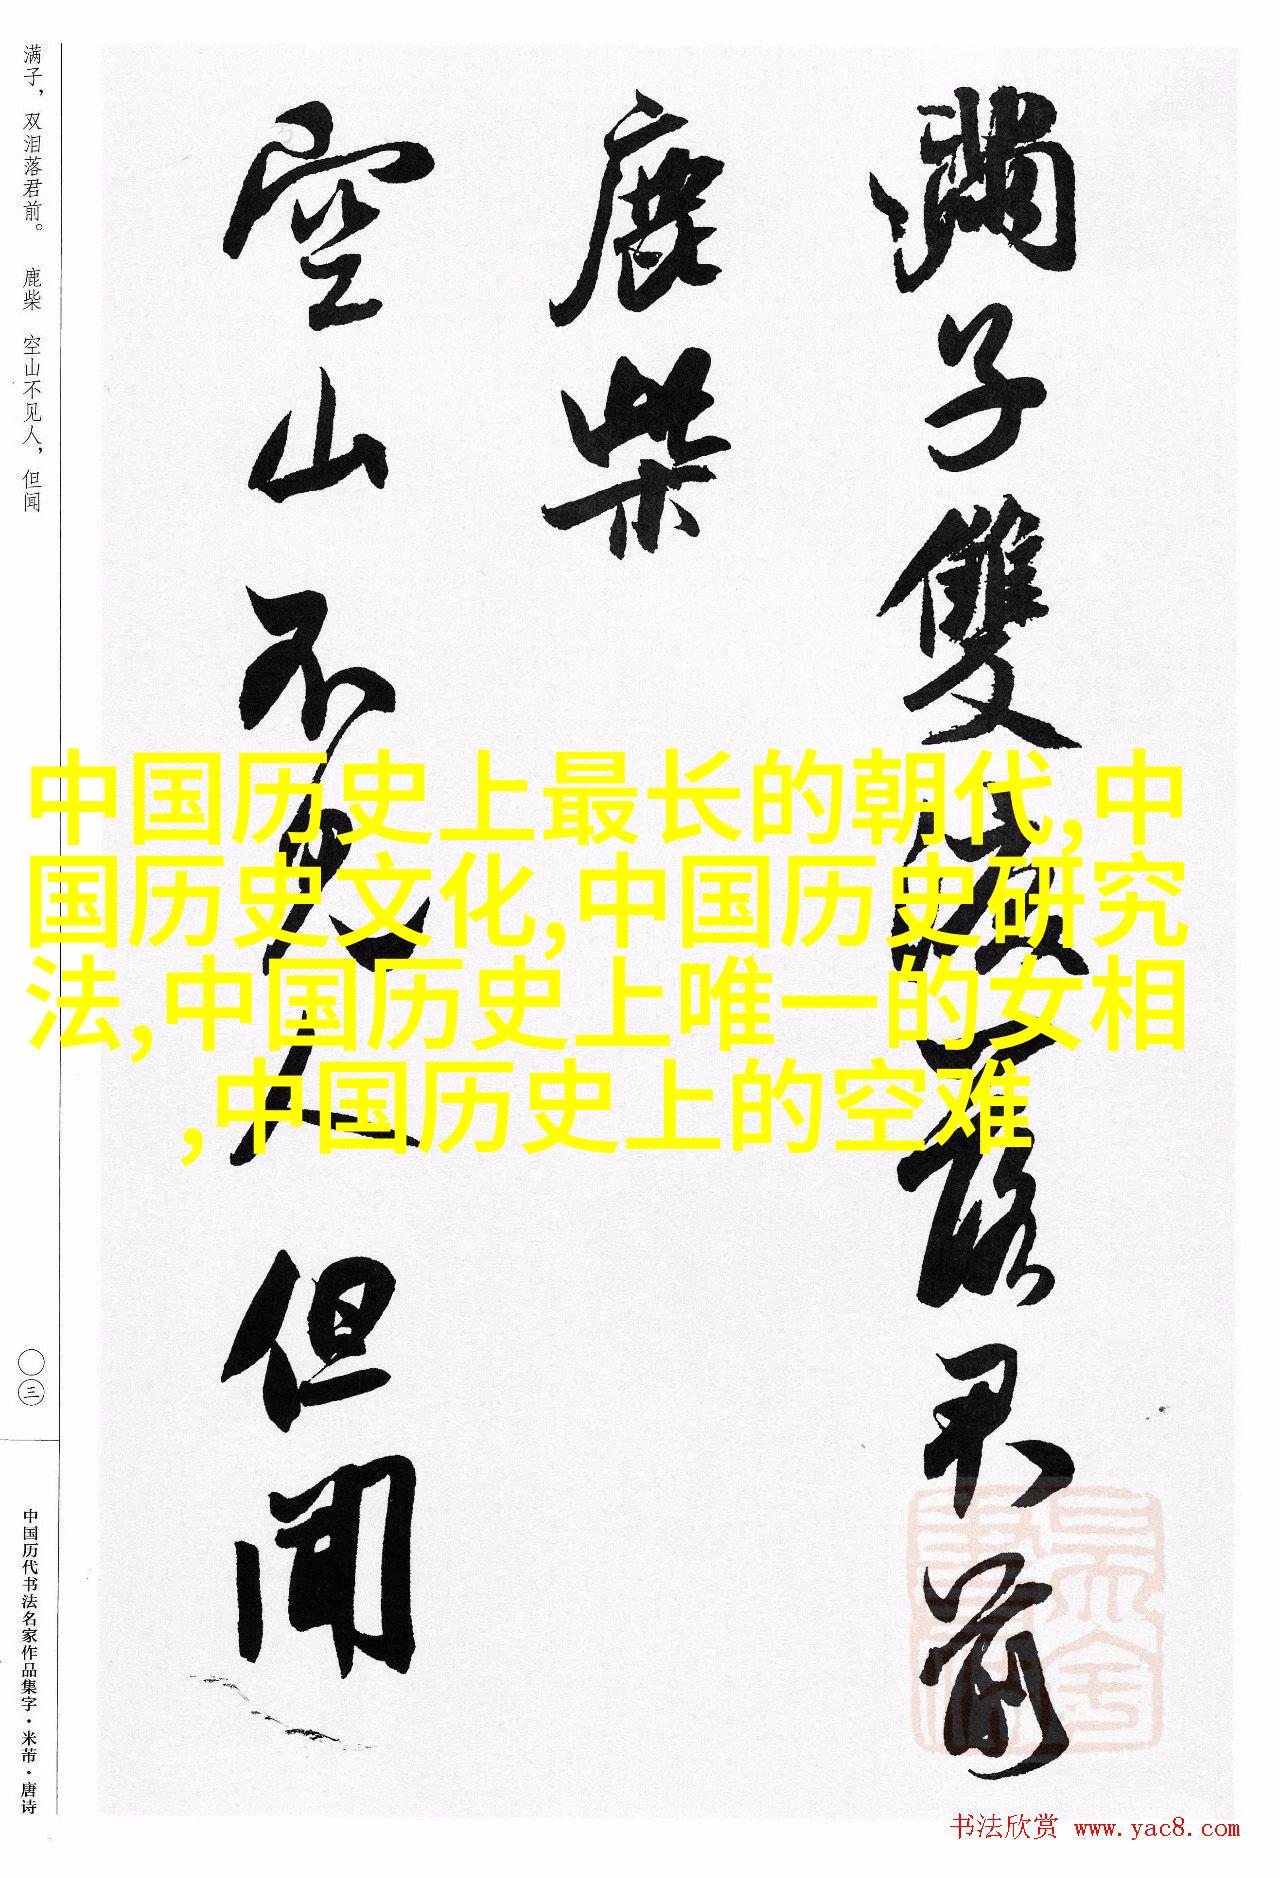 滿子雙淚落君前
鹿柴
空山不見人但聞
满子，双泪落君前。 鹿柴 空山不见人，但闻
〇三
中国历代书法名家作品集字·米芾·唐诗
中国历史上最长的朝代,中
国历史文化,中国历史研究
法,中国历史上唯一的女相
,中国历史上的空难
书法欣赏 www.yac8.com